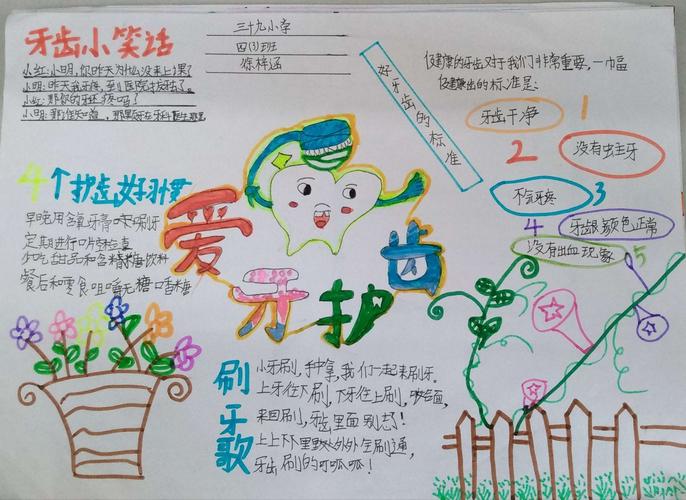 牙齿小笑话
小红:小明,你昨天为什么没来上课?
小明:昨天我牙疼,到医院拔牙了。
小红:那你的牙还疼吗?
小明:那谁知道,那颗牙在牙科医生那里
三十九小学
四(3)班
徐梓涵
好牙齿的标准
健康的牙齿对于我们非常重要,一
健康出的标准是:
牙齿干净
1
2
没有虫主牙
不牙疼
3
4
牙龈颜色正常
没有出血现象
5
4个护齿好习惯
早晚用含氟牙膏 刷牙
定期进行口腔检查
少吃甜品和含糖 饮料
餐后和零食咀嚼无糖口香糖
爱牙护齿
刷牙歌
小牙刷,手中拿,我们一起来刷牙。
上牙往下刷,下牙往上刷,咬合面,
来回刷,牙齿里面别忘!
上上下下里里外外全刷通,
牙齿刷的叮呱呱!